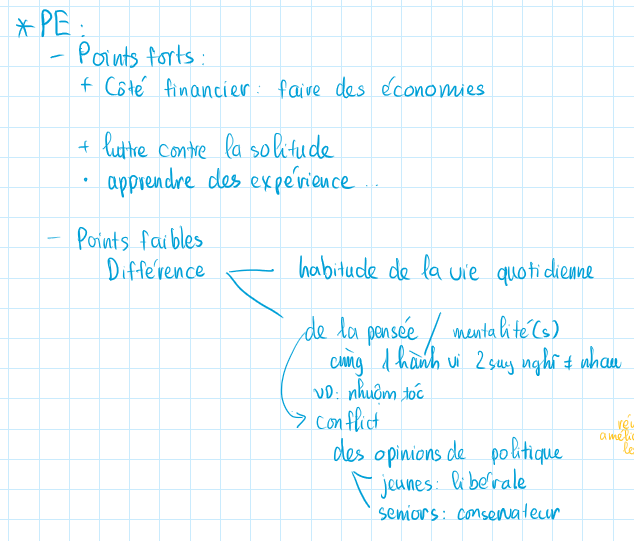 * PE :
- Points forts :
+ Côté financier : faire des économies
+ luttre contre la solitude
• apprendre des expérience ...
- Points faibles
Différence habitude de la vie quotidienne
de la pensée / mentalité(s)
cùng 1 hành vi 2 suy nghĩ ≠ nhau
VD: nhuộm tóc
conflict
des opinions de politique
jeunes: libérale
seniors: conservateur